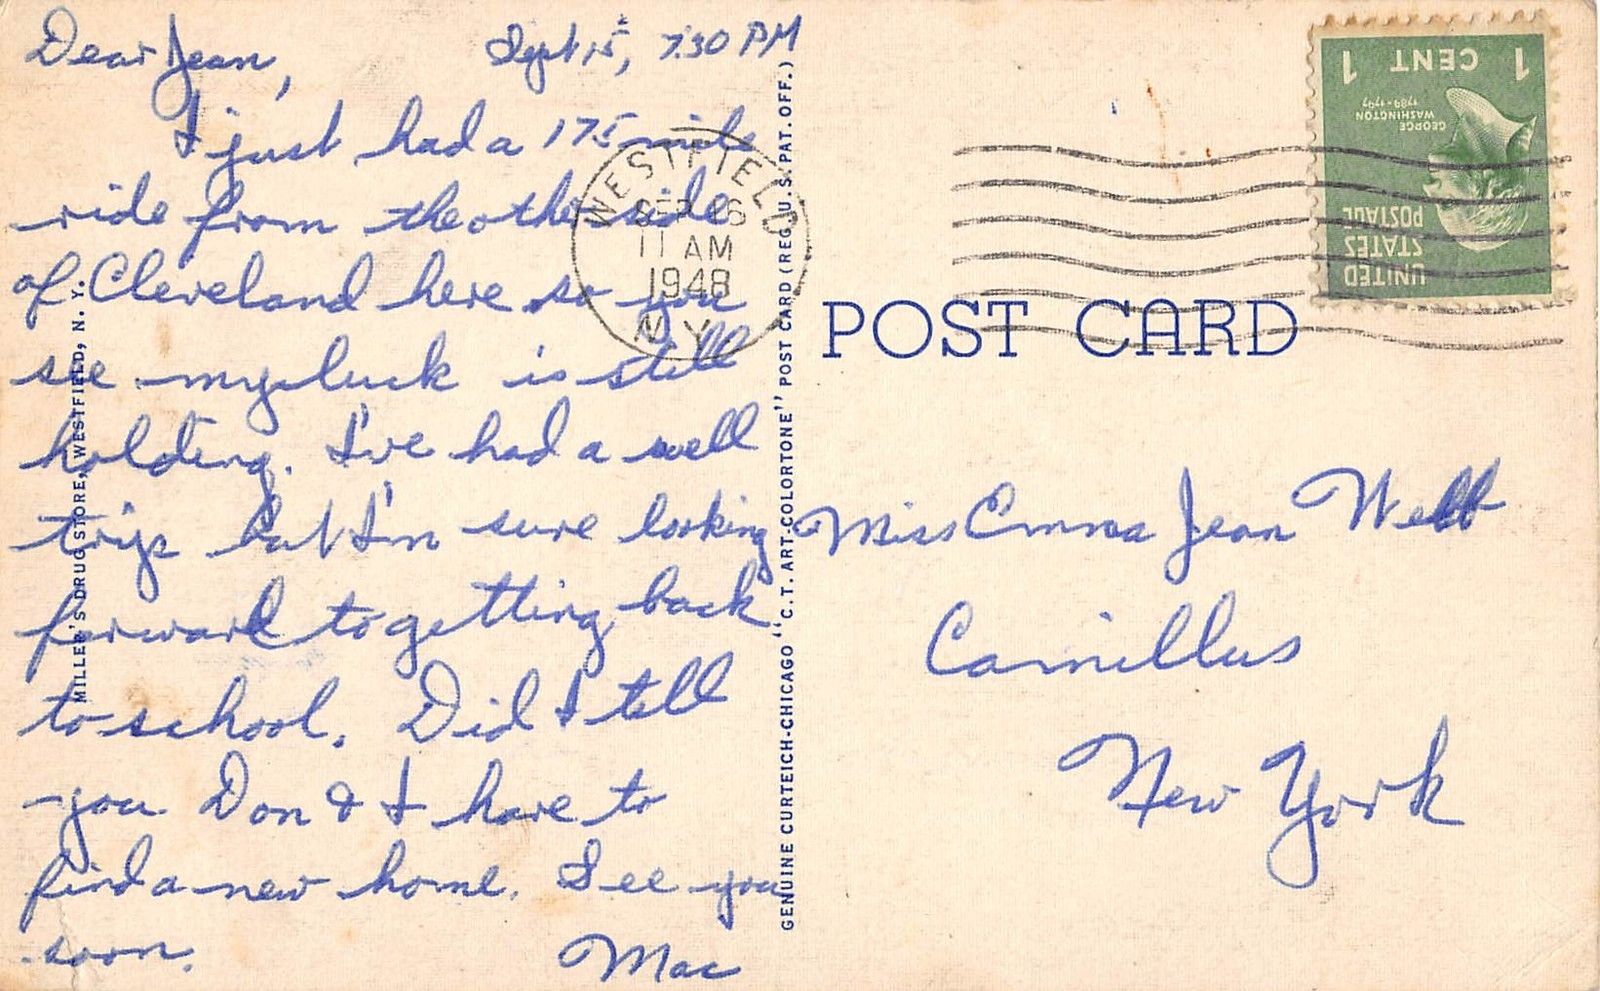 Dear Jean,
Sept 15, 7:30 PM
I just had a 175 mile
ride from the other side
of Cleveland here so you
see my luck is still
holding. I've had a swell
trip but I'm sure looking
forward to getting back
to school. Did I tell
you Don & I have to
find a new home. See you
soon.
Mac
MILLER'S DRUG STORE, WESTFIELD, N. Y.
WESTFIELD
SEP 16
11 AM
1948
N.Y.
GENUINE CURTEICH-CHICAGO "C.T. ART-COLORTONE" POST CARD (REG. U.S. PAT. OFF.)
POST CARD
UNITED
STATES
POSTAGE
GEORGE
WASHINGTON
1789-1797
1 CENT 1
Miss Emma Jean Webb
Camillus
New York